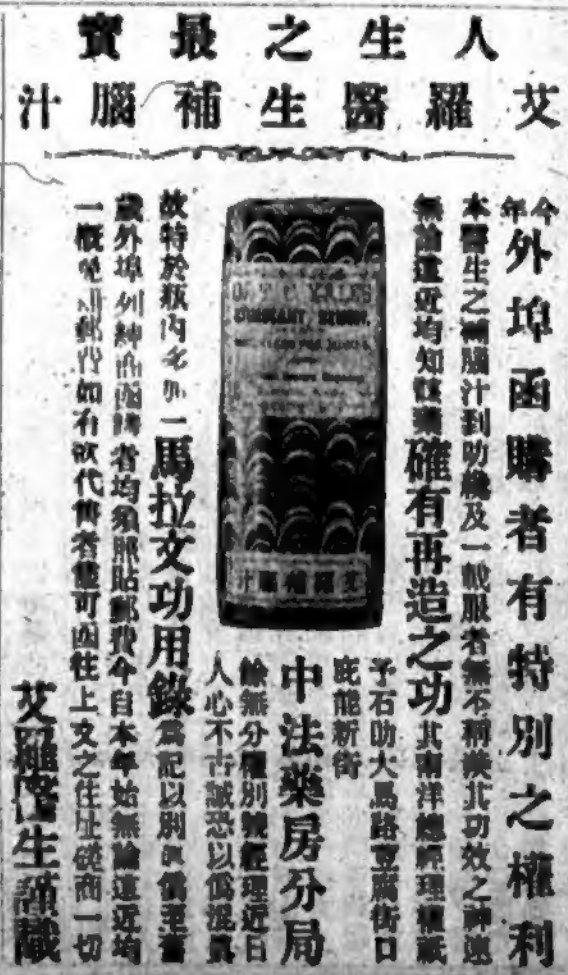 人生之最寶
艾羅醫生補腦汁
今年外埠函購者有特別之權利
本醫生之補腦汁到叻纔及一載服者無不稱羨其功效之神速
無論遠近均知藥確有再造之功其南洋總經理權祇
予石叻大馬路豆腐街口
庇能新街
中法藥房分局
餘無分權別號經理近日
人心不古誠恐以僞混眞
YALE'S
艾羅補腦汁
故特於瓶內多加一馬拉文功用錄爲記以別眞僞至舊
歲外埠列紳商函購者均須照貼郵費今自本年始無論遠近均
一概免郵費如有欲代售者儘可函往上文之住址磋商一切
艾羅醫生謹識